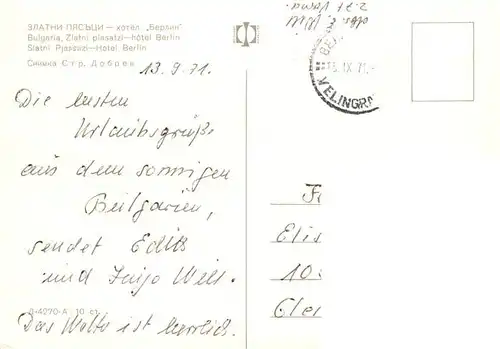 ЗЛАТНИ ПЯСЪЦИ — хотел „Берлин"
Bulgaria, Zlatni piasatzi—hôtel Berlin
Slatni Pjasazi—Hotel Berlin
Снимка Стр. Добрев
13.9.71.
Die besten
Urlaubsgrüße
aus dem sonnigen
Bulgarien,
sendet Edith
und Ingo Will.
Д-4270-А 10 ст.
Das Wetter ist herrlich.
IX 71
VELINGRA
F
Elis
10